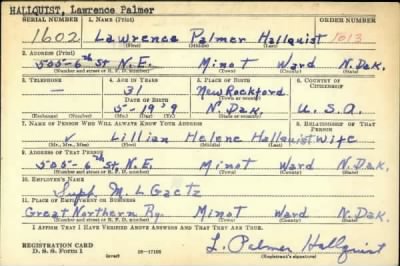 HALLQUIST, Lawrence Palmer
ORDER NUMBER
SERIAL NUMBER 1. NAME (Print)
1602 Lawrence Palmer Hallquist 1613
(First) (Middle) (Last)
2. ADDRESS (Print)
505-6th St. N.E. Minot Ward N.Dak.
(Number and street or R. F. D. number) (Town) (County) (State)
3. TELEPHONE 4. AGE IN YEARS 5. PLACE OF BIRTH 6. COUNTRY OF CITIZENSHIP
— 31 New Rockford
DATE OF BIRTH (Town or county)
5-19'9 N.Dak. U.S.A.
(Exchange) (Number) (Mo.) (Day) (Yr.) (State or country)
7. NAME OF PERSON WHO WILL ALWAYS KNOW YOUR ADDRESS 8. RELATIONSHIP OF THAT PERSON
✓ Lillian Helene Hallquist Wife
(Mr., Mrs., Miss) (First) (Middle) (Last)
9. ADDRESS OF THAT PERSON
505-6th St. N.E. Minot Ward N.Dak.
(Number and street or R. F. D. number) (Town) (County) (State)
10. EMPLOYER'S NAME
Supt. M. L. Gaetz
11. PLACE OF EMPLOYMENT OR BUSINESS
Great Northern Ry. Minot Ward N.Dak.
(Number and street or R. F. D. number) (Town) (County) (State)
I AFFIRM THAT I HAVE VERIFIED ABOVE ANSWERS AND THAT THEY ARE TRUE.
REGISTRATION CARD
D. S. S. Form 1 (over) L. Palmer Hallquist
(Registrant's signature)